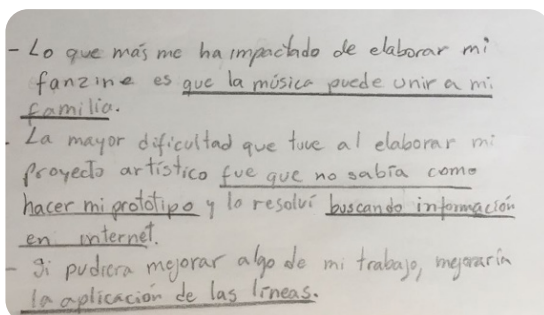 - Lo que más me ha impactado de elaborar mi
fanzine es que la música puede unir a mi
familia.
- La mayor dificultad que tuve al elaborar mi
proyecto artístico fue que no sabía como
hacer mi prototipo y lo resolví buscando información
en internet.
- Si pudiera mejorar algo de mi trabajo, mejoraría
la aplicación de las líneas.